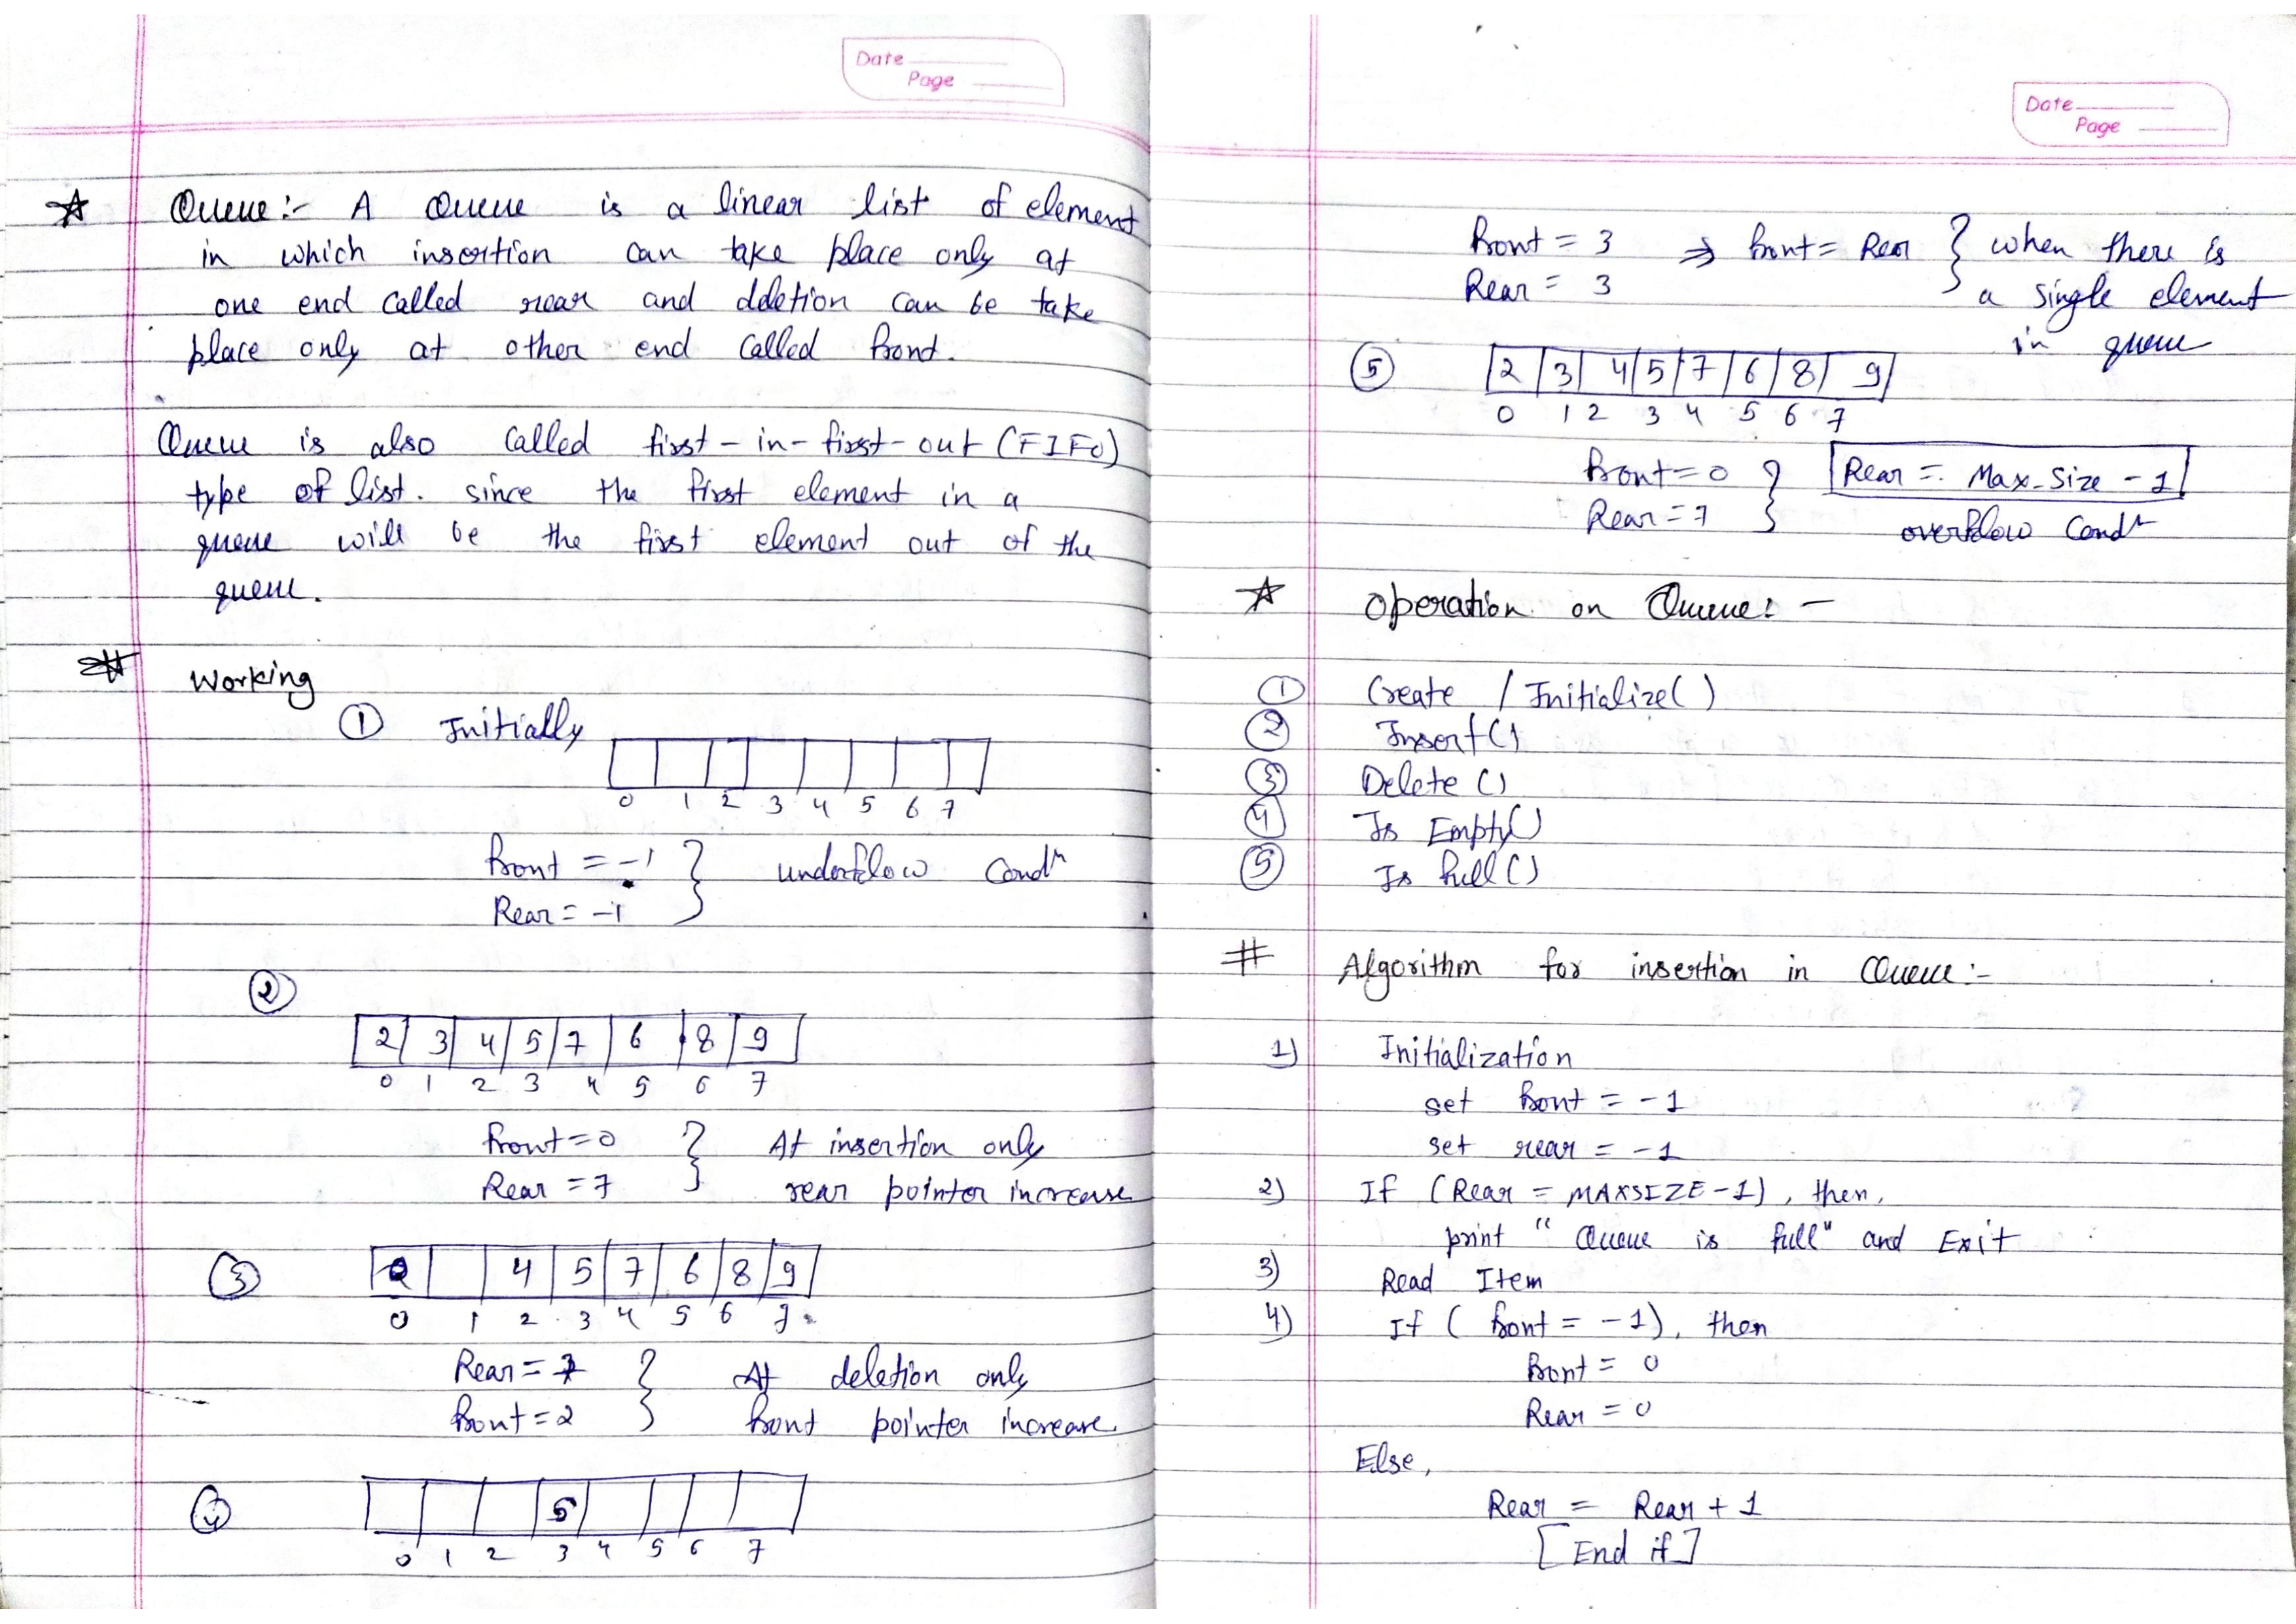 Date
Page
☆ Queue:- A Queue is a linear list of element
in which insertion can take place only at
one end called rear and deletion can be take
place only at other end called front.
Queue is also called first-in-first-out (FIFO)
type of list. since the first element in a
queue will be the first element out of the
queue.
# Working
① Initially
0 1 2 3 4 5 6 7
front = -1 } underflow Condn
Rear = -1
②
2 3 4 5 7 6 8 9
0 1 2 3 4 5 6 7
front=0 } At insertion only
Rear = 7 rear pointer increase
③ 4 5 7 6 8 9
0 1 2 3 4 5 6 7
Rear = 7 } At deletion only
front=2 front pointer increase.
④ 5
0 1 2 3 4 5 6 7
Date
Page
front = 3 ⇒ front = Rear } when there is
Rear = 3 a single element
in queue
⑤ 2 3 4 5 7 6 8 9
0 1 2 3 4 5 6 7
front=0 } Rear = Max-Size - 1
Rear=7 overflow Condn
☆ Operation on Queue: -
① Create / Initialize()
② Insert()
③ Delete ()
④ Is Empty()
⑤ Is full()
# Algorithm for insertion in Queue:-
1) Initialization
set front = -1
set rear = -1
2) If (Rear = MAXSIZE-1), then,
print "Queue is full" and Exit
3) Read Item
4) If ( front = -1), then
front = 0
Rear = 0
Else,
Rear = Rear + 1
[End if]